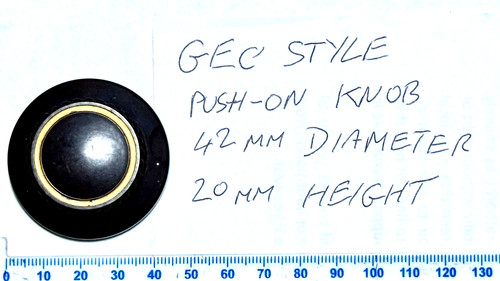 GEC STYLE
PUSH-ON KNOB
42 MM DIAMETER
20 MM HEIGHT
0 10 20 30 40 50 60 70 80 90 100 110 120 130